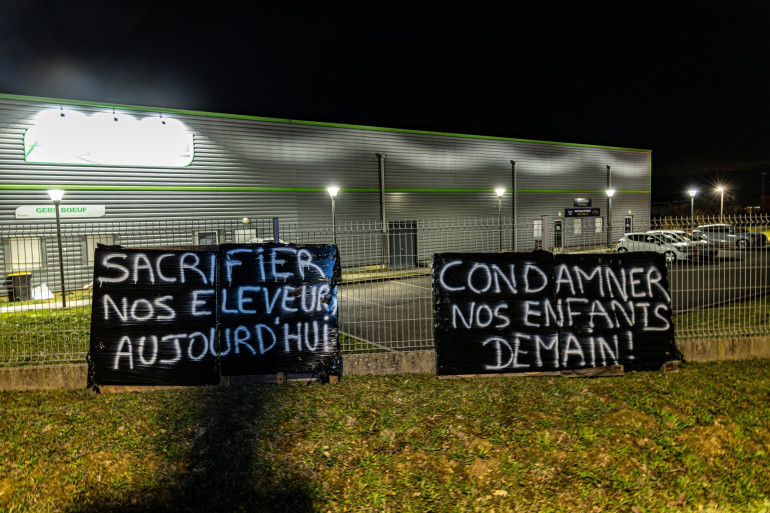 GERS BOEUF
SACRIFIER
NOS ELEVEURS
AUJOURD'HUI
CONDAMNER
NOS ENFANTS
DEMAIN!